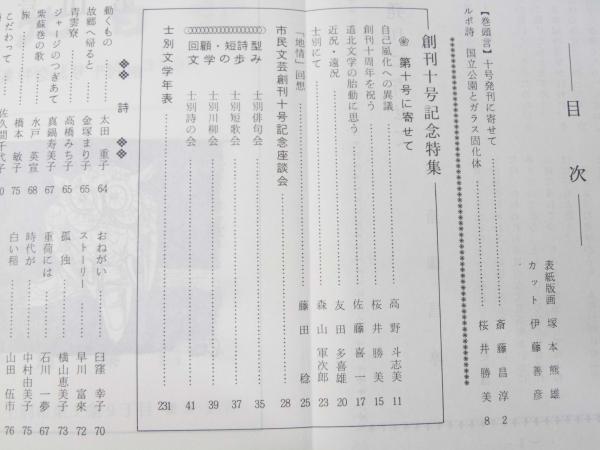 目次
表紙版画 塚本熊雄
カット 伊藤善彦
【巻頭言】十号発刊に寄せて……斎藤昌淳 2
ルポ詩 国立公園とガラス固化体……桜井勝美 8
創刊十号記念特集
第十号に寄せて
自己風化への異議……高野斗志美 11
創刊十周年を祝う……桜井勝美 15
道北文学の胎動に思う……佐藤喜一 17
近況・遠況……友田多喜雄 20
士別にて……森山軍次郎 23
「地情」回想……藤田稔 25
市民文芸創刊十号記念座談会……28
回顧・短詩型文学の歩み
士別俳句会……35
士別短歌会……37
士別川柳会……39
士別詩の会……41
士別文学年表……231
詩
動くもの……太田重子 64
故郷へ帰ると……金塚まり子 65
青雲寮……高橋みち子 65
ジャージのつぎあて……真鍋寿美子 67
紫蘇巻の歌……水戸英宣 68
旅……橋本敏子 75
こだわって……佐久間千代子
おねがい……臼窪幸子 70
ストーリー……早川富來 72
孤独……横山恵美子 73
重荷には……石川一夢 67
時代が……中村由美子 75
白い稲……山田伍市 76